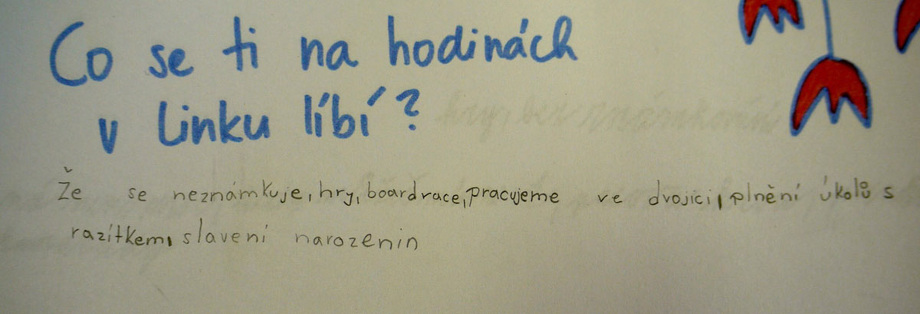 Co se ti na hodinách
v Linku líbí?
Že se neznámkuje, hry, boardrace, pracujeme ve dvojici, plnění úkolů s
razítkem, slavení narozenin